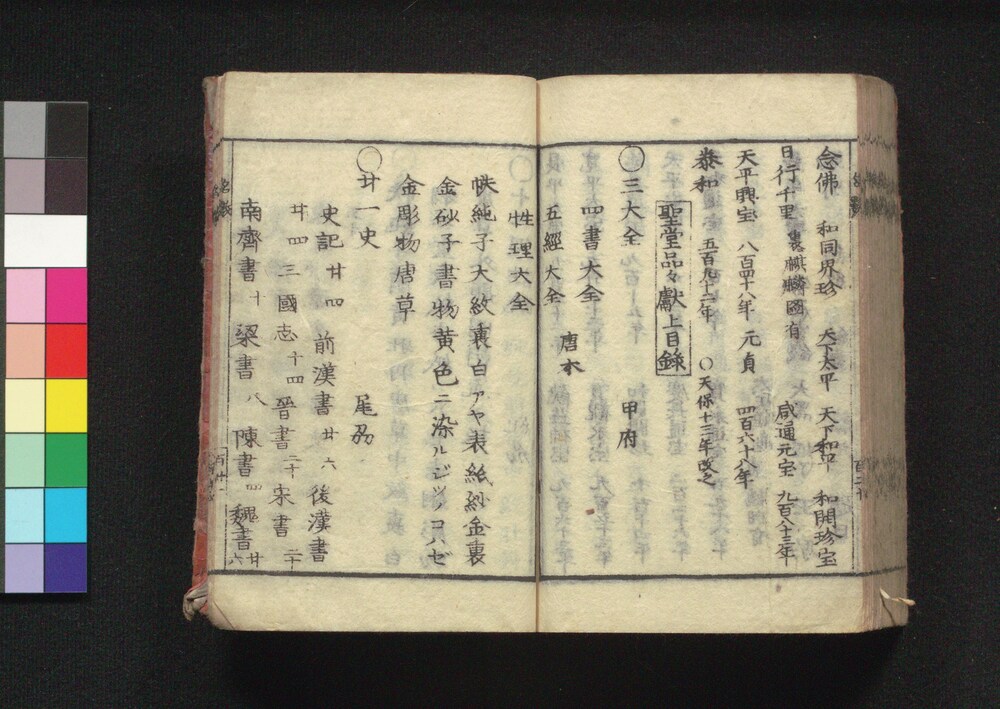 念佛　和同界珍　天下太平　天下和平　和開珍宝
日行千里　裏麒麟図有　咸通元宝　九百八十三年
天平興宝　八百四十八年　元貞　四百六十八年
泰和　五百九十二年　○天保十三年改之
聖堂品々獻上目錄
○三大全　甲府
四書大全
唐本
五經大全
性理大全
帙純子大紋裏白アヤ表紙紗金裏
金砂子書物黄色ニ染ルジツノコハゼ
金彫物唐草
○廿一史　尾刕
史記廿四　前漢書廿六　後漢書
廿四　三國志十四　晉書二十　宋書二十
南齊書十　梁書八　陳書四　魏書廿六